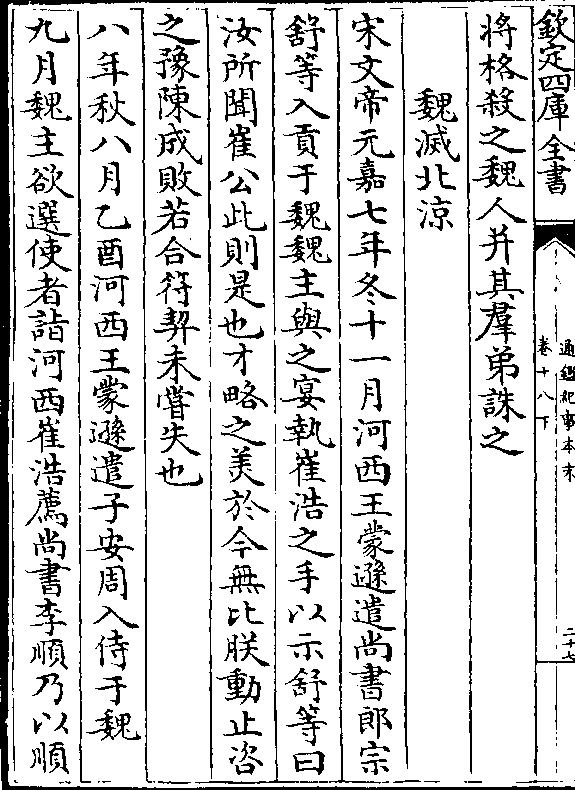 欽定四庫全書
通鑑紀事本末
卷十八下
二十七
將格殺之魏人并其羣弟誅之
魏滅北涼
宋文帝元嘉七年冬十一月河西王蒙遜遣尚書郎宗
舒等入貢于魏魏主與之宴執崔浩之手以示舒等曰
汝所聞崔公此則是也才略之美於今無比朕動止咨
之豫陳成敗若合符契未嘗失也
八年秋八月乙酉河西王蒙遜遣子安周入侍于魏
九月魏主欲選使者詣河西崔浩薦尚書李順乃以順